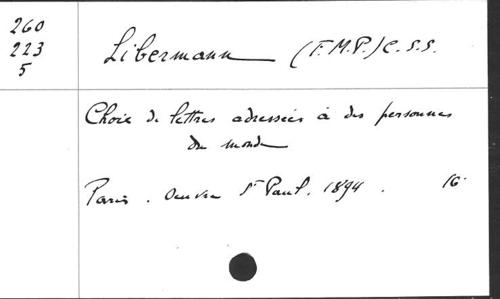 260
223
5
Libermann (F.M.P.) C.S.S.
Choix de lettres adressées à des personnes
du monde
Paris. Oeuvre St Paul. 1894. 16